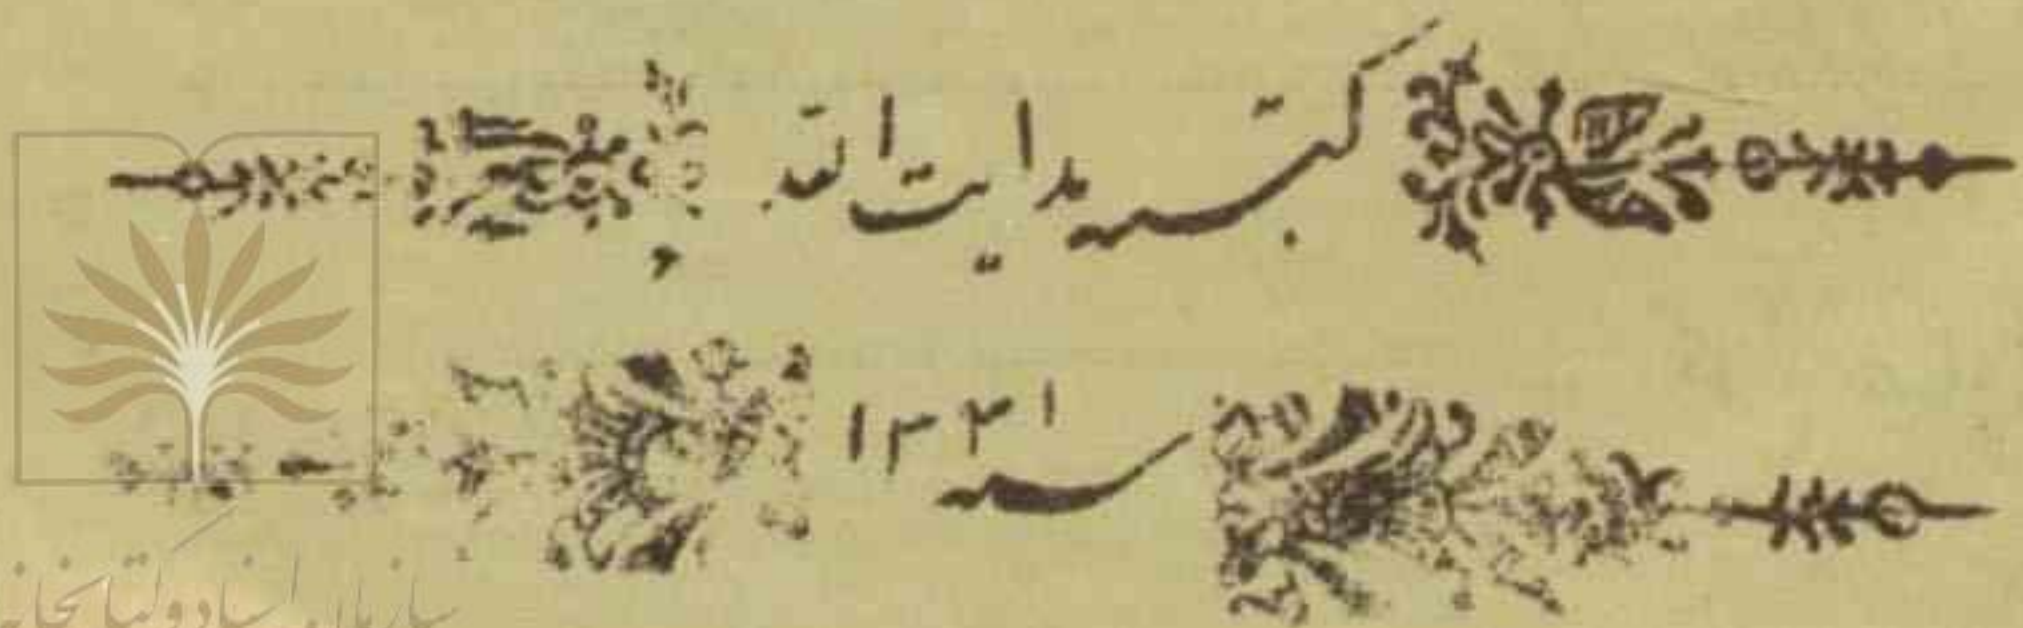 کتبه هدایت الله
سنه ۱۳۳۱
سازمان اسناد و کتابخانه